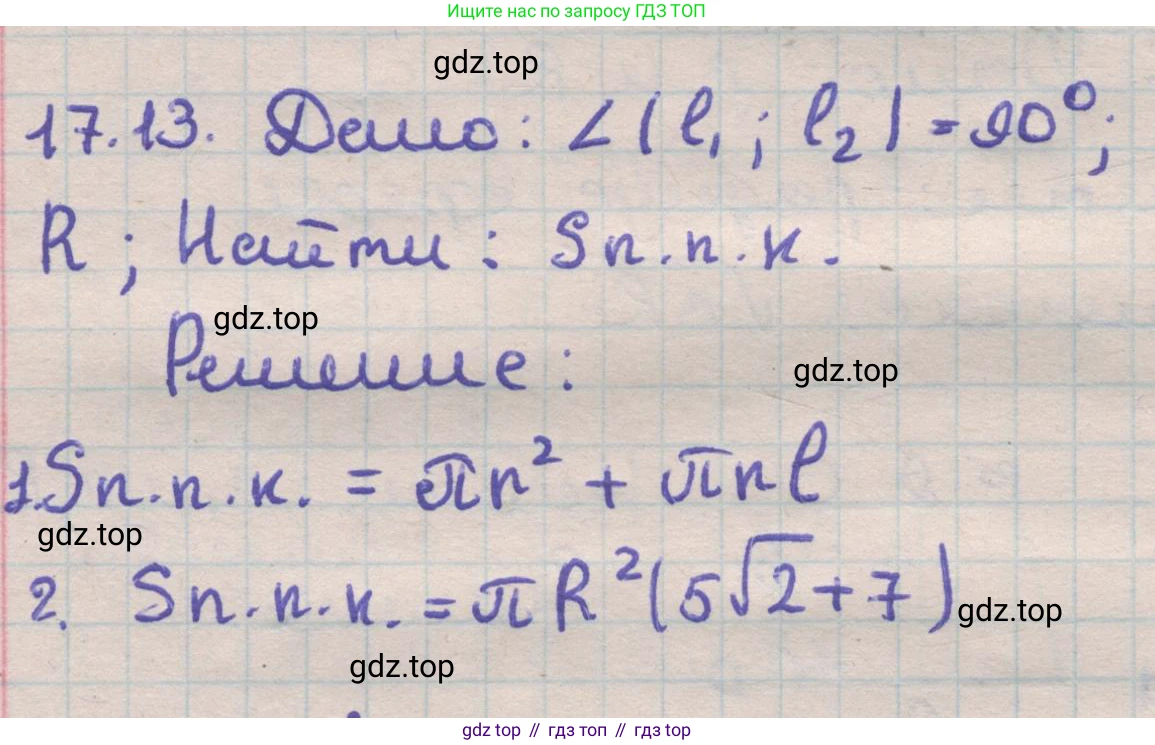 Ищите нас по запросу ГДЗ ТОП
gdz.top
17.13. Дано: ∠(l₁; l₂) = 90⁰;
R; Найти: Sп.п.к.
gdz.top
Решение:
gdz.top
1. Sп.п.к. = πr² + πrl
gdz.top
2. Sп.п.к. = πR²(5√2+7)
gdz.top
gdz.top
gdz top // гдз топ // гдз top